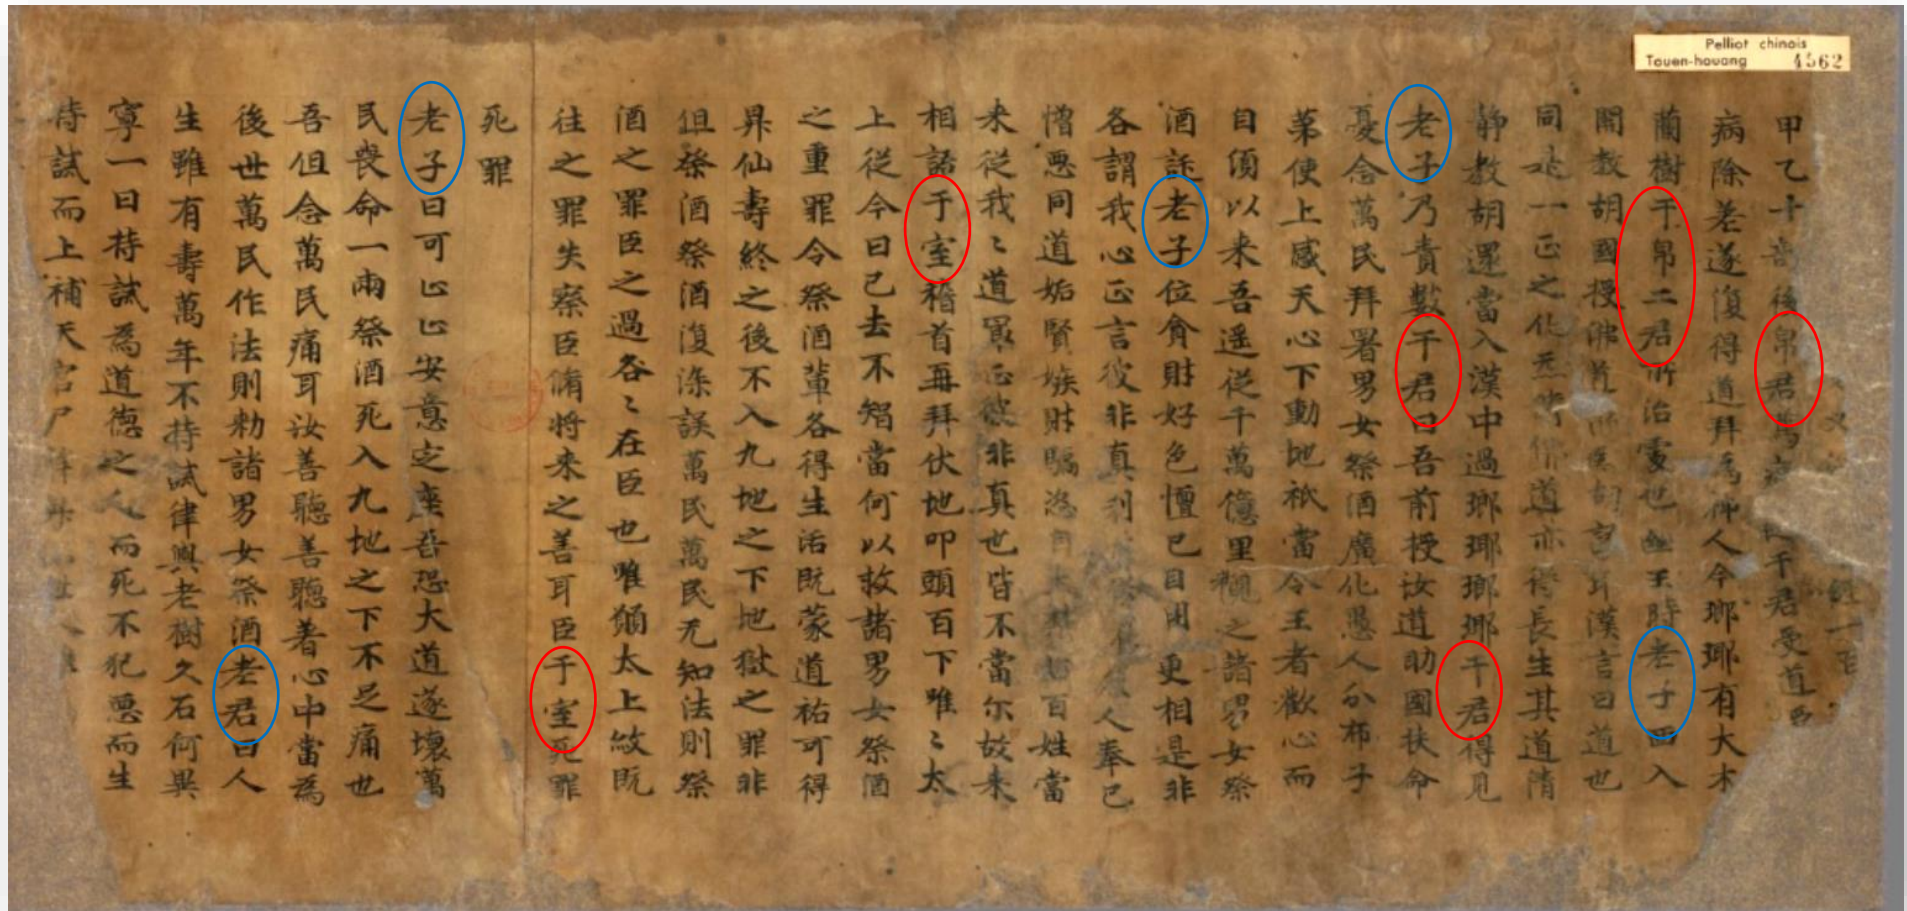 Pelliot chinois
Touen-houang 4562
經一百
甲乙十後帛君干君受道
病除差遂復得道拜為仙人今瑯琊有大木
蘭樹干帛二君所治處也幽王時老子西入
關教胡國授佛胡言漢言曰道也
同是一正之化佛道亦得長生其道清
靜教胡還當入漢中過瑯琊瑯琊干君得見
老子乃責數干君曰吾前授汝道助國扶命
憂念萬民拜署男女祭酒廣化愚人分布子
弟使上感天心下動地祇當令王者歡心而
自須以来吾遥從千萬億里觀之諸男女祭
酒託老子位貪財好色擅己自用更相是非
各謂我心正言彼非真利人奉己
憎惡同道妬賢嫉財驕恣自百姓當
来從我〻道㝡正彼非真也皆不當尔故来
相語于室稽首再拜伏地叩頭百下唯〻太
上從今日已去不知當何以救諸男女祭酒
之重罪令祭酒輩各得生活既蒙道祐可得
昇仙壽終之後不入九地之下地獄之罪非
但祭酒祭酒復誤萬民萬民无知法則祭
酒之罪臣之過咎〻在臣也唯願太上赦既
往之罪失察臣脩將来之善耳臣于室死罪
死罪
老子曰可止止安意定座吾恐大道遂壞萬
民喪命一兩祭酒死入九地之下不足痛也
吾但念萬民痛耳汝善聽善聽著心中當為
後世萬民作法則勑諸男女祭酒老君曰人
生雖有壽萬年不持誡律與老樹久石何異
寧一曰持誡為道德之人而死不犯惡而生
持誡而上補天官尸解